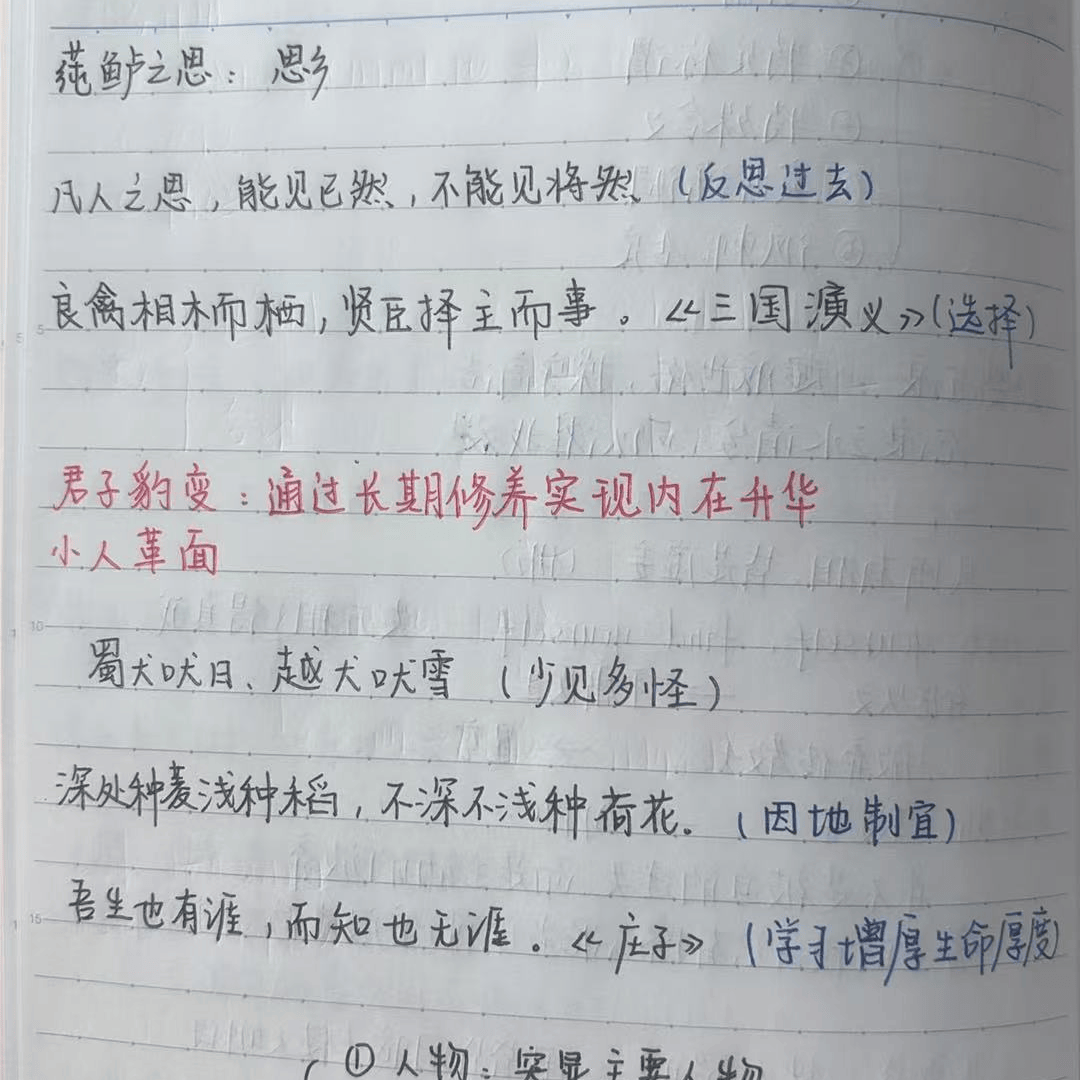 莼鲈之思：思乡
凡人之思，能见已然，不能见将然（反思过去）
良禽相木而栖，贤臣择主而事。《三国演义》(选择)
君子豹变：通过长期修养实现内在升华
小人革面
蜀犬吠日、越犬吠雪（少见多怪）
深处种麦浅种稻，不深不浅种荷花。（因地制宜）
吾生也有涯，而知也无涯。《庄子》（学习增厚生命厚度
①人物：突显主要人物